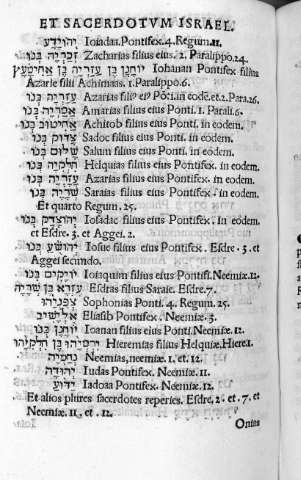 ET SACERDOTVM ISRAEL.
יְהוֹיָדָע Ioiadaa. Pontifex. 4. Regum. 11.
זְכַרְיָה בְּנוֹ Zacharias filius eius. 2. Paralippo. 24.
יוֹחָנָן בֶּן עֲזַרְיָה בֶּן אֲחִימַעַץ Iohanan Pontifex filius
Azariæ filii Achimaas. 1. Paralippo. 6.
עֲזַרְיָה בְּנוֹ Azarias filiꝰ eiꝰ Põti. in eodē. et. 2. Para. 26.
אֲמַרְיָה בְּנוֹ Amarias filius eius Ponti. 1. Parali. 6.
אֲחִיטוּב בְּנוֹ Achitob filius eius Ponti. in eodem.
צָדוֹק בְּנוֹ Sadoc filius eius Ponti. in eodem.
שַׁלּוּם בְּנוֹ Salum filius eius Ponti. in eodem.
חִלְקִיָּה בְּנוֹ Helquias filius eius Pontifex. in eodem.
עֲזַרְיָה בְּנוֹ Azarias filius eius Pontifex. in eodem.
שְׂרָיָה בְּנוֹ Saraias filius eius Pontifex. in eodem.
Et quarto Regum. 25.
יְהוֹצָדָק בְּנוֹ Iosadac filius eius Pontifex. In eodem
et Esdre. 3. et Aggei. 2.
יְהוֹשֻׁעַ בְּנוֹ Iosue filius eius Pontifex. Esdre. 3. et
Aggei secundo.
יוֹיָקִים בְּנוֹ Ioiaquim filius eius Pontif. Neemiæ. 12.
עֶזְרָא בֶן שְׂרָיָה Esdras filius Saraie. Esdre. 7.
צְפַנְיָהוּ Sophonias Ponti. 4. Regum. 25.
אֶלְיָשִׁיב Eliasib Pontifex. Neemiæ. 3.
יוֹחָנָן בְּנוֹ Ioanan filius eius Ponti. Neemiæ. 12.
יִרְמְיָהוּ בֶּן חִלְקִיָּהוּ Hieremias filius Helquiæ. Hiere. 1.
נְחֶמְיָה Neemias, neemiæ. 1. et. 12.
יְהוּדָה Iudas Pontifex. Neemiæ. 12.
יַדּוּעַ Iadoaa Pontifex. Neemiæ. 12.
Et alios plures sacerdotes reperies. Esdre. 2. et. 7. et
Neemiæ. 11. et. 12.
Onias